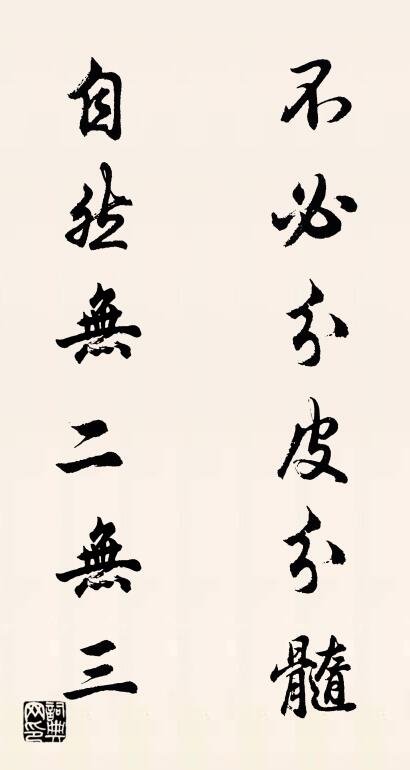 不必分皮分髓
自然無二無三
詞典網印